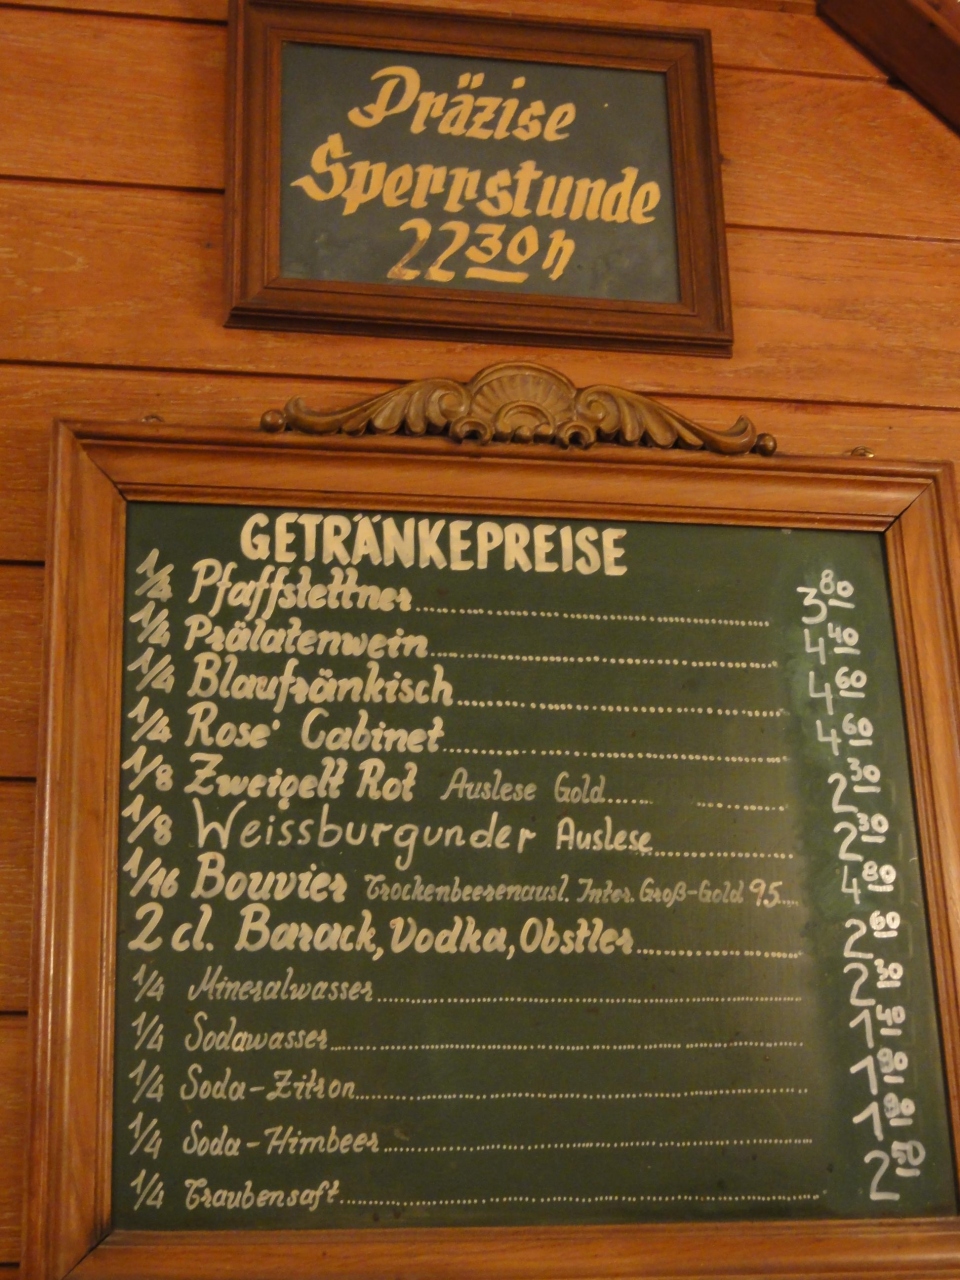 Präzise
Sperrstunde
22 30 h
GETRÄNKEPREISE
1/4 Pfaffstettner 3 80
1/4 Prälatenwein 4 40
1/4 Blaufränkisch 4 60
1/4 Rose' Cabinet 4 60
1/8 Zweigelt Rot Auslese Gold 2 30
1/8 Weissburgunder Auslese 2 30
1/16 Bouvier Trockenbeerenausl. Inter. Groß-Gold 95 4 80
2 cl. Barack, Vodka, Obstler 2 60
1/4 Mineralwasser 2 30
1/4 Sodawasser 1 40
1/4 Soda-Zitron 1 90
1/4 Soda-Himbeer 1 90
1/4 Traubensaft 2 50